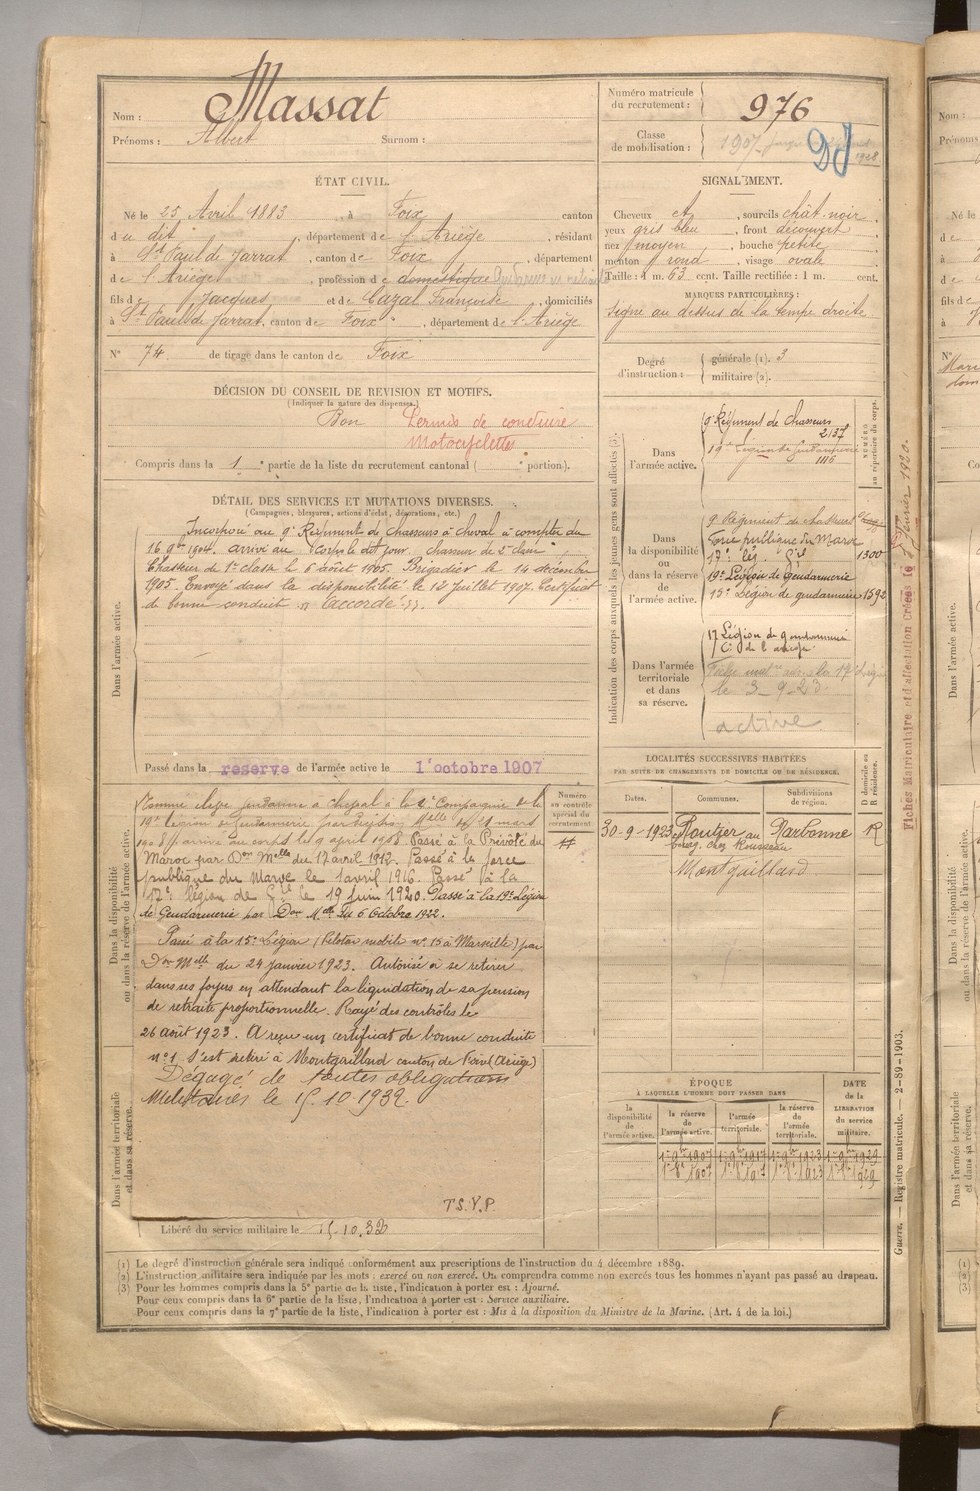 Nom : Massat
Prénoms : Albert Surnom :
Numéro matricule du recrutement : 976
Classe de mobilisation : 1907
DJ
1928
ÉTAT CIVIL.
Né le 25 Avril 1883, à Foix canton
du dit, département de l'Ariège, résidant
à St Paul de Jarrat, canton de Foix, département
de l'Ariège, profession de domestique Gendarme en retraite
fils de Jacques et de Cazal Françoise, domiciliés
à St Paul de Jarrat, canton de Foix, département de l'Ariège
N° 74 de tirage dans le canton de Foix
SIGNALEMENT.
Cheveux et, sourcils chât-noir.
yeux gris bleu, front découvert
nez moyen, bouche petite
menton rond, visage ovale
Taille : 1 m. 63 cent. Taille rectifiée : 1 m. cent.
MARQUES PARTICULIÈRES :
Signe au dessus de la tempe droite.
Degré d'instruction : générale (1). 3
militaire (2).
DÉCISION DU CONSEIL DE REVISION ET MOTIFS.
(Indiquer la nature des dispenses.)
Bon Permis de conduire
Motocyclettes
Compris dans la 1e partie de la liste du recrutement cantonal ( e portion).
DÉTAIL DES SERVICES ET MUTATIONS DIVERSES.
(Campagnes, blessures, actions d'éclat, décorations, etc.)
Dans l'armée active.
Incorporé au 9e Régiment de chasseurs à cheval à compter du
16 9bre 1904. arrivé au corps le dit jour. chasseur de 2e classe
Chasseur de 1re classe le 6 août 1905. Brigadier le 14 décembre
1905. Envoyé dans la disponibilité le 12 Juillet 1907. Certificat
de bonne conduite accordé
Passé dans la réserve de l'armée active le 1er octobre 1907
Dans la disponibilité ou dans la réserve de l'armée active.
Nommé élève gendarme à cheval à la 2e Compagnie de la
19e légion de gendarmerie par décision Melle du 21 mars
1908 arrivé au corps le 9 avril 1908. Passé à la Prévôté du
Maroc par Don Melle du 17 avril 1912. Passé à la force
publique du Maroc le 1er avril 1916. Passé à la
17e légion de Gie le 19 juin 1920. Passé à la 19e Légion
de Gendarmerie par Don Melle du 6 Octobre 1922.
Passé à la 15e Légion (Peloton mobile n° 15 à Marseille) par
Don Melle du 24 janvier 1923. Autorisé à se retirer
dans ses foyers en attendant la liquidation de sa pension
de retraite proportionnelle. Rayé des contrôles le
26 août 1923. A reçu un certificat de bonne conduite
n° 1. S'est retiré à Montgaillard canton de Foix (Ariège)
Dégagé de toutes obligations
Militaires le 15.10.1932
Dans l'armée territoriale et dans sa réserve.
T.S.V.P.
Libéré du service militaire le 15.10.32
Numéro au contrôle spécial du recrutement
Indication des corps auxquels les jeunes gens sont affectés (3).
NUMÉRO au répertoire du corps.
Dans l'armée active.
9e Régiment de chasseurs
2137
19e Légion de Gendarmerie
1116
Dans la disponibilité ou dans la réserve de l'armée active.
9e Régiment de chasseurs
Force publique du Maroc
17e lég. Gie 1300
19e Légion de Gendarmerie
15e Légion de gendarmerie 1592
Dans l'armée territoriale et dans sa réserve.
17 Légion de gendarmerie
Cie de l'ariège
le 3-9-23
active
LOCALITÉS SUCCESSIVES HABITÉES
PAR SUITE DE CHANGEMENTS DE DOMICILE OU DE RÉSIDENCE.
Dates. Communes. Subdivisions de région. D domicile ou R résidence.
30-9-1923 Routier au Narbonne R
chez Rousseau
Montgaillard
ÉPOQUE
À LAQUELLE L'HOMME DOIT PASSER DANS
la disponibilité de l'armée active. la réserve de l'armée active. l'armée territoriale. la réserve de l'armée territoriale. DATE de la LIBÉRATION du service militaire.
1er 9bre 1907 1er 9bre 1917 1er 9bre 1923 1er 9bre 1929
1er 8bre 1907 1er 8bre 1917 1er 8bre 1923 1er 8bre 1929
(1) Le degré d'instruction générale sera indiqué conformément aux prescriptions de l'instruction du 4 décembre 1889.
(2) L'instruction militaire sera indiquée par les mots : exercé ou non exercé. On comprendra comme non exercés tous les hommes n'ayant pas passé au drapeau.
(3) Pour les hommes compris dans la 5e partie de la liste, l'indication à porter est : Ajourné.
Pour ceux compris dans la 6e partie de la liste, l'indication à porter est : Service auxiliaire.
Pour ceux compris dans la 7e partie de la liste, l'indication à porter est : Mis à la disposition du Ministre de la Marine. (Art. 4 de la loi.)
Fiches Matriculaire et d'affectation Créées le Février 1920.
Guerre. — Registre matricule. — 2-89-1903.